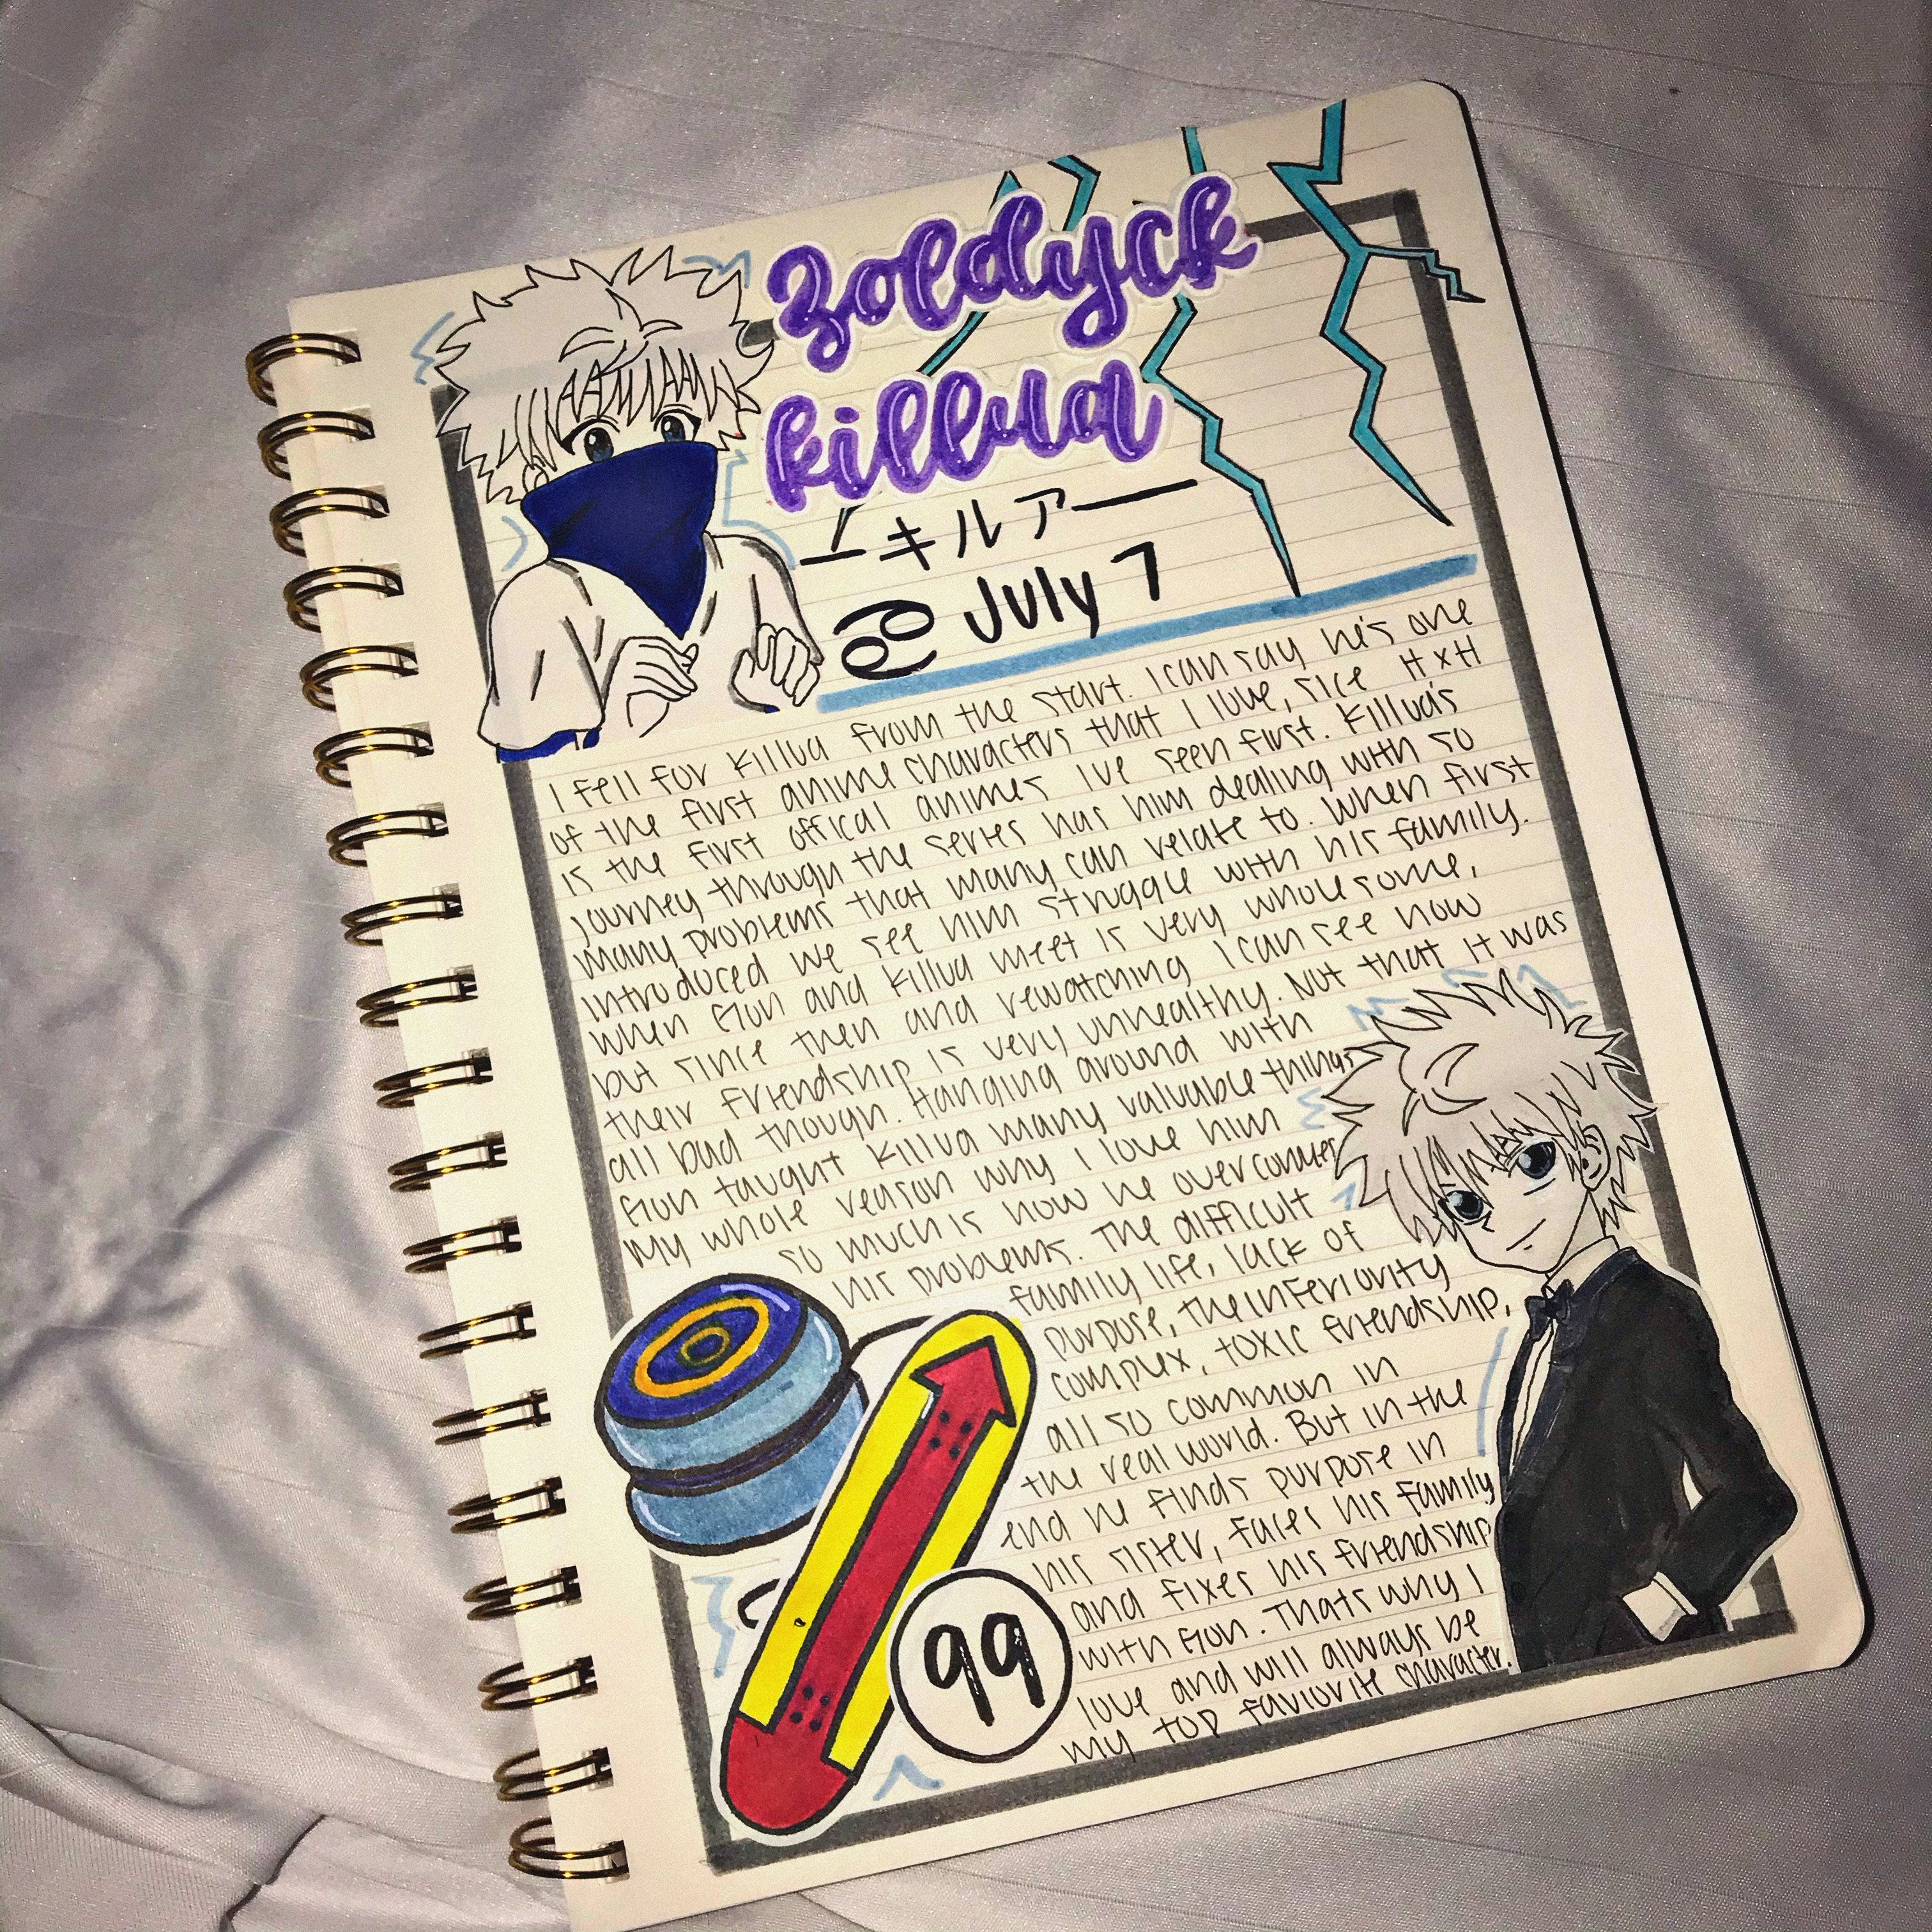 Zoldyck
Killua
ーキルアー
♋ July 7
I fell for Killua from the start. I can say he's one
of the first anime characters that I love, sice HxH
is the first offical animes Ive seen first. Killua's
journey through the series has him dealing with so
many problems that many can relate to. When first
introduced we see him struggle with his family.
When Gon and Killua meet is very wholesome,
but since then and rewatching I can see how
their friendship is very unhealthy. Not that it was
all bad though. Hanging around with
Gon taught Killua many valuable things
My whole reason why I love him
so much is how he overcomes
his problems. The difficult
family life, lack of
purpose, the inferiority
complex, toxic friendship,
all so common in
the real world. But in the
end he finds purpose in
his sister, faces his family
and fixes his friendship
with Gon. Thats why I
love and will always be
my top faviorite character.
99